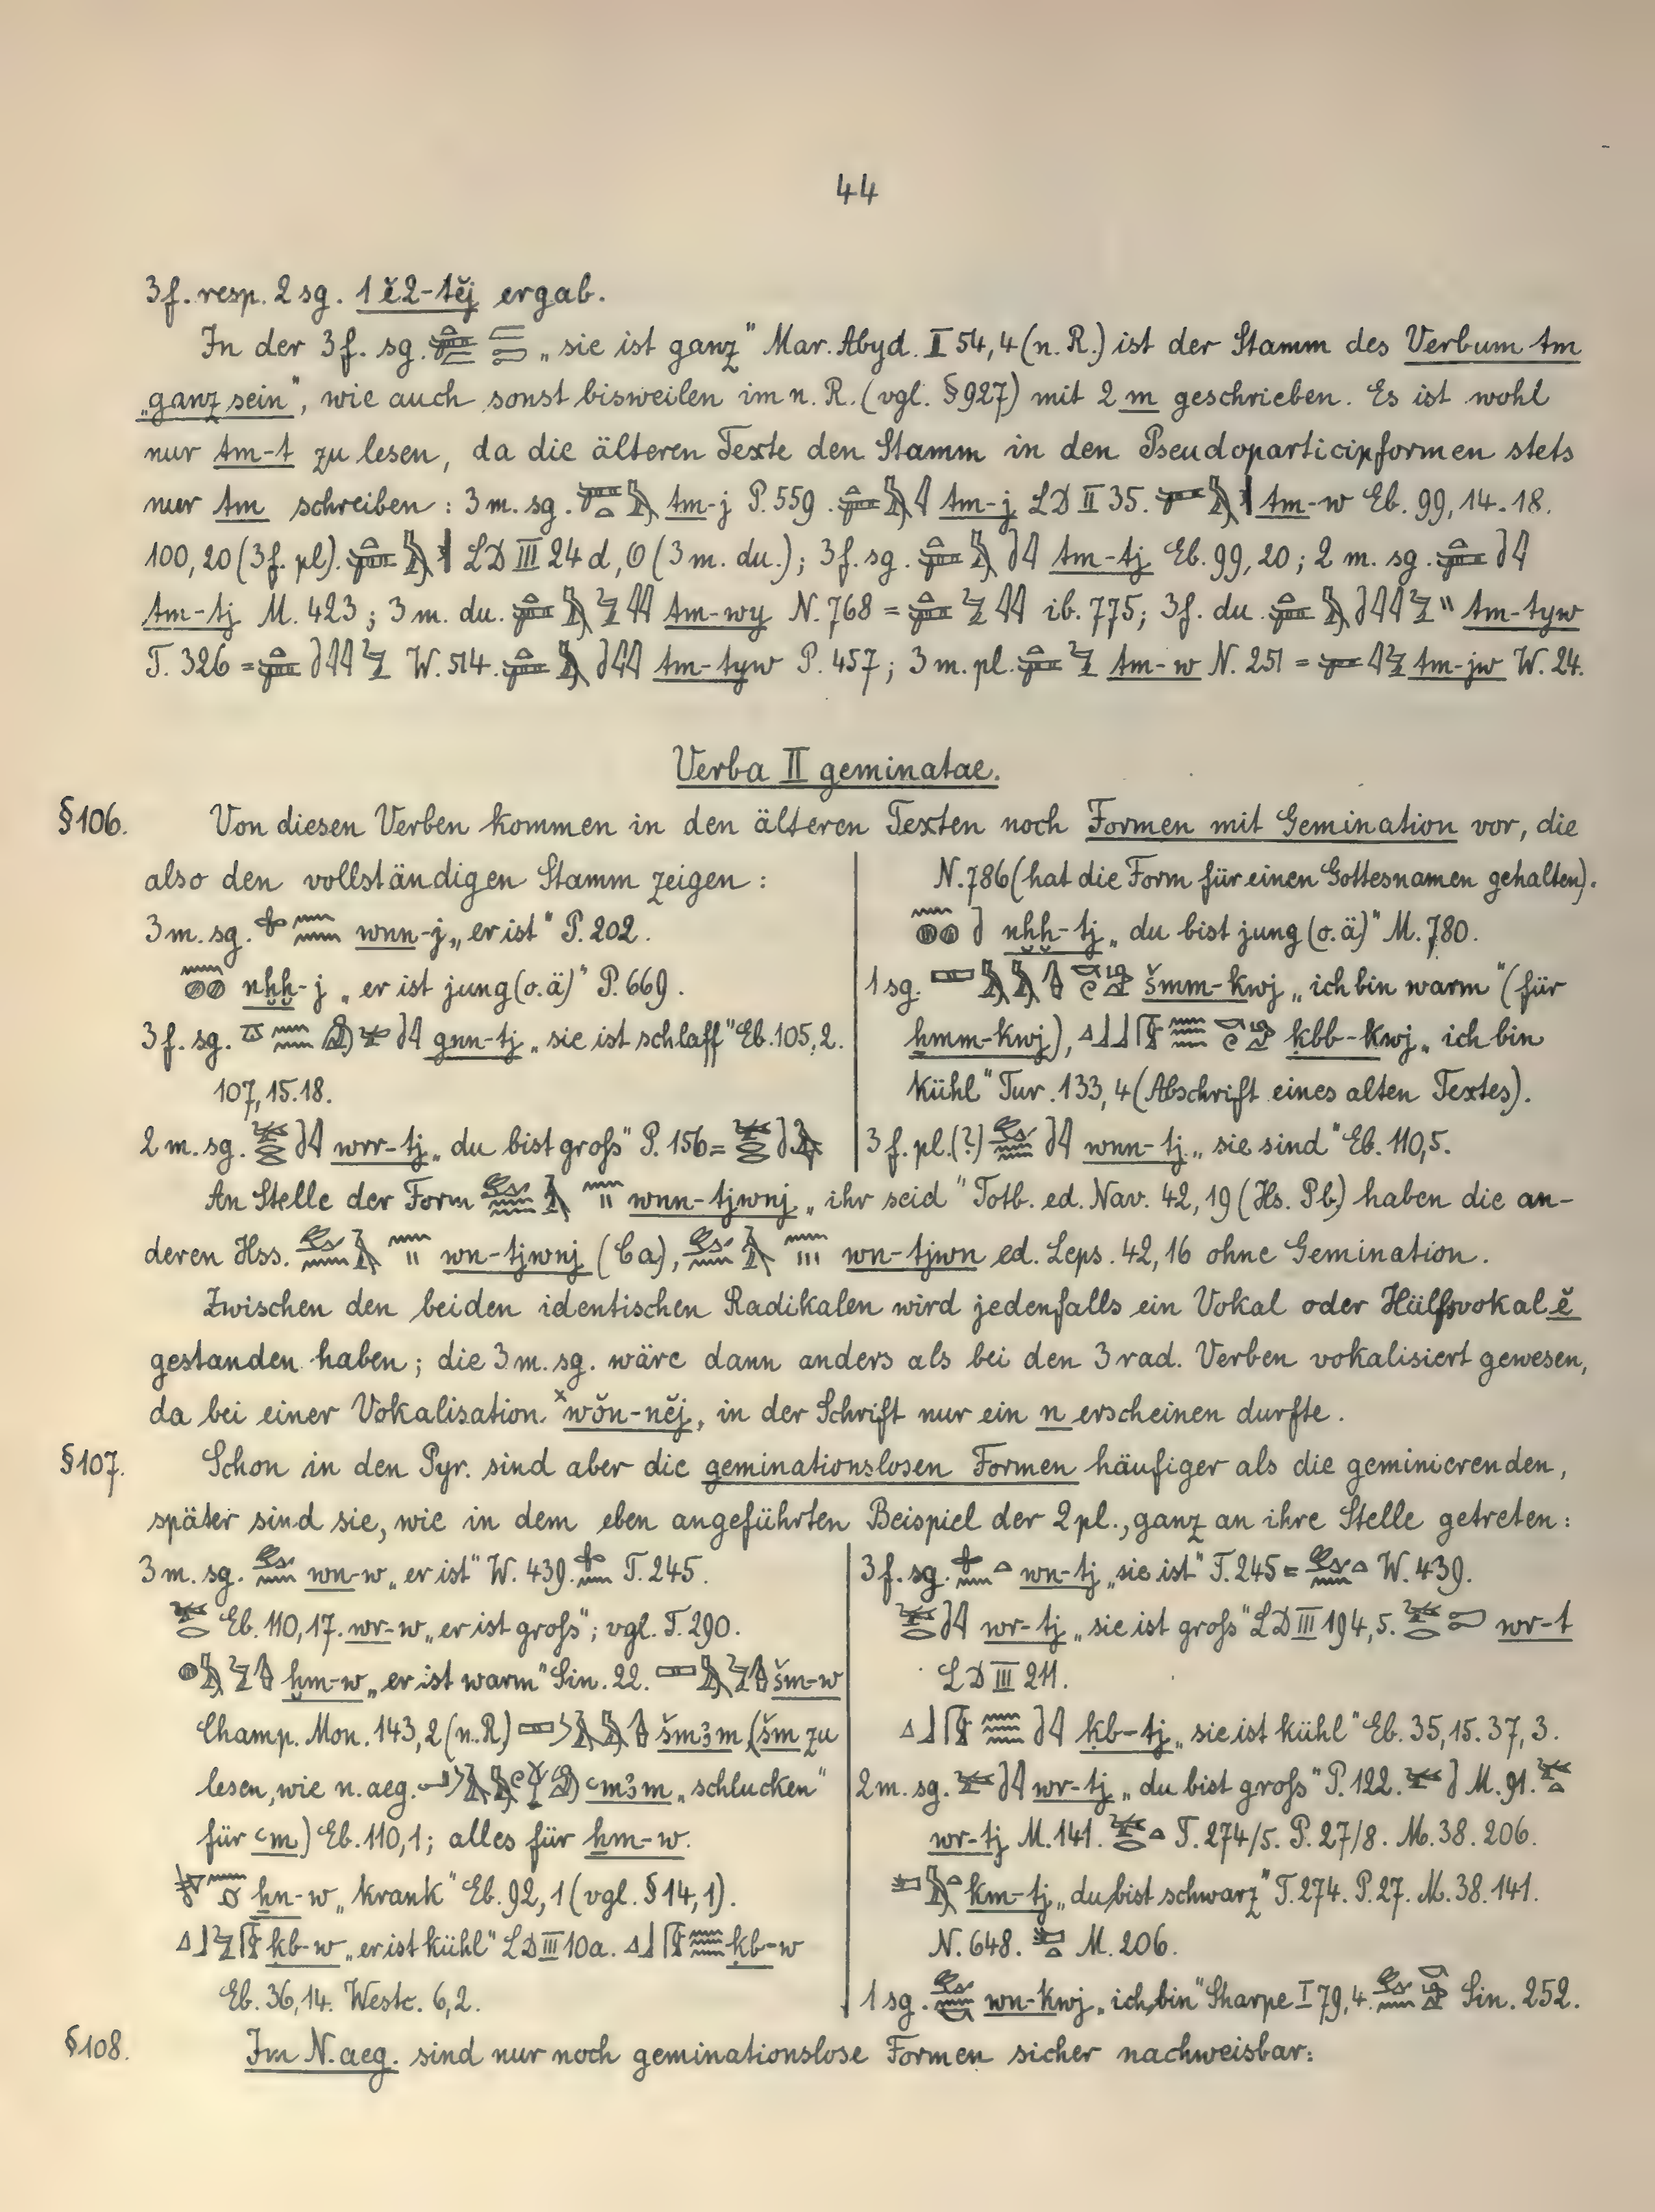 44
3f. resp. 2 sg. 1ĕ2-tĕj ergab.
In der 3f. sg. „sie ist ganz" Mar. Abyd. I 54,4 (n. R.) ist der Stamm des Verbum tm
„ganz sein", wie auch sonst bisweilen im n. R. (vgl. §927) mit 2 m geschrieben. Es ist wohl
nur tm-t zu lesen, da die älteren Texte den Stamm in den Pseudoparticipformen stets
nur tm schreiben: 3 m. sg. tm-j P. 559. tm-j LD II 35. tm-w Eb. 99, 14. 18.
100, 20 (3f. pl). LD III 24 d, O (3 m. du.); 3f. sg. tm-tj Eb. 99, 20; 2 m. sg.
tm-tj M. 423; 3 m. du. tm-wy N. 768 = ib. 775; 3f. du. tm-tyw
T. 326 = W. 514. tm-tyw P. 457; 3 m. pl. tm-w N. 251 = tm-jw W. 24.
Verba II geminatae.
§106. Von diesen Verben kommen in den älteren Texten noch Formen mit Gemination vor, die
also den vollständigen Stamm zeigen:
3 m. sg. wnn-j „er ist" P. 202.
nḫḫ-j „er ist jung (o. ä)" P. 669.
3f. sg. gnn-tj „sie ist schlaff" Eb. 105, 2.
107, 15. 18.
2 m. sg. wrr-tj „du bist groß" P. 156 =
N. 786 (hat die Form für einen Gottesnamen gehalten).
nḫḫ-tj „du bist jung (o. ä)" M. 780.
1 sg. šmm-kwj „ich bin warm" (für
ẖmm-kwj), ḳbb-kwj „ich bin
kühl" Tur. 133, 4 (Abschrift eines alten Textes).
3 f. pl. (?) wnn-tj „sie sind" Eb. 110, 5.
An Stelle der Form wnn-tjwnj „ihr seid" Totb. ed. Nav. 42, 19 (Hs. Pb) haben die an-
deren Hss. wn-tjwnj (Ca), wn-tjwn ed. Leps. 42, 16 ohne Gemination.
Zwischen den beiden identischen Radikalen wird jedenfalls ein Vokal oder Hülfsvokal ĕ
gestanden haben; die 3 m. sg. wäre dann anders als bei den 3 rad. Verben vokalisiert gewesen,
da bei einer Vokalisation ˣwŏn-nĕj, in der Schrift nur ein n erscheinen durfte.
§107. Schon in den Pyr. sind aber die geminationslosen Formen häufiger als die geminierenden,
später sind sie, wie in dem eben angeführten Beispiel der 2 pl., ganz an ihre Stelle getreten:
3 m. sg. wn-w „er ist" W. 439. T. 245.
Eb. 110, 17. wr-w „er ist groß"; vgl. T. 290.
ḫm-w „er ist warm" Sin. 22. šm-w
Champ. Mon. 143, 2 (n. R.) šmꜣm (šm zu
lesen, wie n. aeg. ꜥmꜣm „schlucken"
für ꜥm) Eb. 110, 1; alles für ẖm-w.
ẖn-w „krank" Eb. 92, 1 (vgl. § 14, 1).
ḳb-w „er ist kühl" LD III 10a. ḳb-w
Eb. 36, 14. Westc. 6, 2.
3 f. sg. wn-tj „sie ist" T. 245 = W. 439.
wr-tj „sie ist groß" LD III 194, 5. wr-t
LD III 211.
ḳb-tj „sie ist kühl" Eb. 35, 15. 37, 3.
2 m. sg. wr-tj „du bist groß" P. 122. M. 91.
wr-tj M. 141. T. 274/5. P. 27/8. M. 38. 206.
km-tj „du bist schwarz" T. 274. P. 27. M. 38. 141.
N. 648. M. 206.
1 sg. wn-kwj „ich bin" Sharpe I 79, 4. Sin. 252.
§108. Im N. aeg. sind nur noch geminationslose Formen sicher nachweisbar: